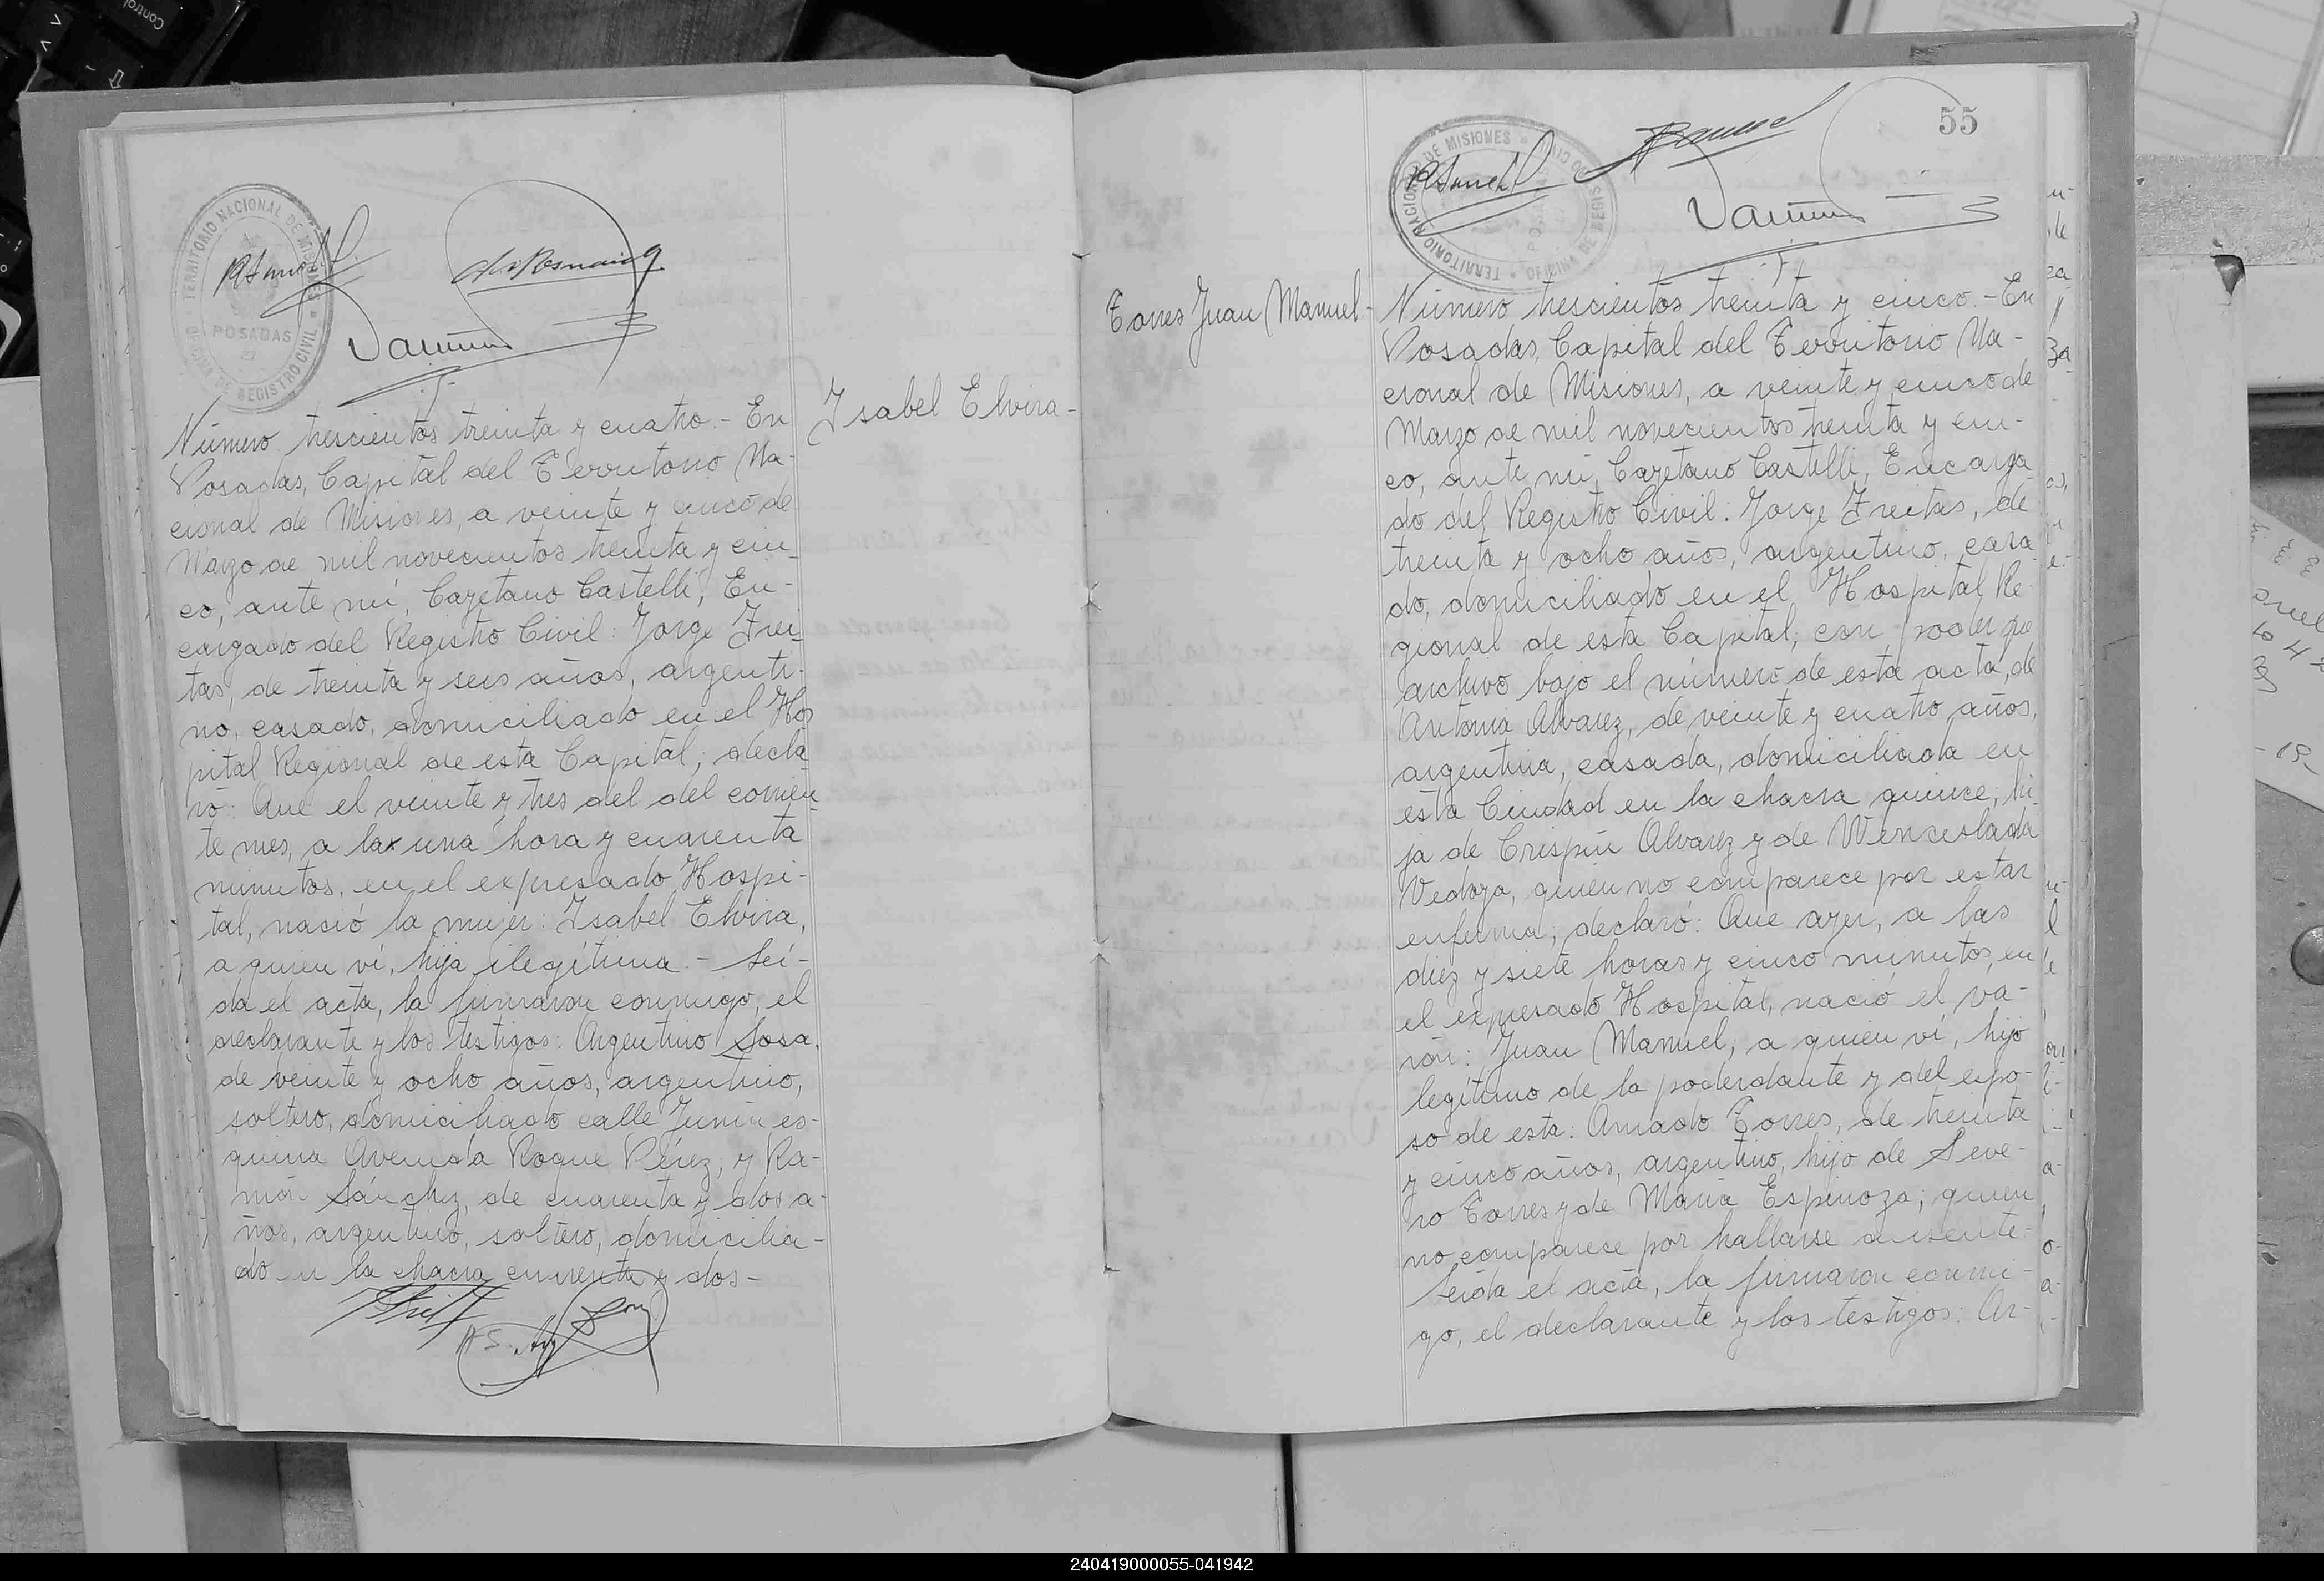 TERRITORIO NACIONAL DE MISIONES
POSADAS
OFICINA DE REGISTRO CIVIL
Número trescientos treinta y cuatro.- En
Posadas, Capital del Territorio Na-
cional de Misiones, a veinte y cinco de
Marzo de mil novecientos treinta y cin-
co, ante mí, Cayetano Castelli, En-
cargado del Registro Civil: Jorge Frei-
tas, de treinta y seis años, argenti-
no, casado, domiciliado en el Hos
pital Regional de esta Capital; decla
ró: Que el veinte y tres del del corrien
te mes, a las una hora y cuarenta
minutos, en el expresado Hospi-
tal, nació la mujer: Isabel Elvira,
a quien ví, hija ilegítima.- Leí-
da el acta, la firmaron conmigo, el
declarante y los testigos: Argentino Sosa,
de veinte y ocho años, argentino,
soltero, domiciliado calle Junín es-
quina Avenida Roque Pérez, y Ra-
món Sánchez, de cuarenta y dos a-
ños, argentino, soltero, domicilia-
do en la chacra cuarenta y dos-
Isabel Elvira-
55
TERRITORIO NACIONAL DE MISIONES
OFICINA DE REGISTRO
Torres Juan Manuel-
Número trescientos treinta y cinco.- En
Posadas, Capital del Territorio Na-
cional de Misiones, a veinte y cinco de
Marzo de mil novecientos treinta y cin-
co, ante mí, Cayetano Castelli, Encarga
do del Registro Civil: Jorge Freitas, de
treinta y ocho años, argentino, casa
do, domiciliado en el Hospital Re-
gional de esta Capital, con poder que
archivo bajo el número de esta acta, de
Antonia Alvarez, de veinte y cuatro años,
argentina, casada, domiciliada en
esta Ciudad en la chacra quince, hi-
ja de Crispín Alvarez y de Wenceslada
Vedoya, quien no comparece por estar
enferma, declaró: Que ayer, a las
diez y siete horas y cinco minutos, en
el expresado Hospital, nació el va-
rón: Juan Manuel, a quien ví, hijo
legítimo de la poderdante y del espo-
so de esta: Amado Torres, de treinta
y cinco años, argentino, hijo de Seve-
ro Torres y de María Espinoza; quien
no comparece por hallarse ausente.
Leída el acta, la firmaron conmi-
go, el declarante y los testigos: Ar-
240419000055-041942